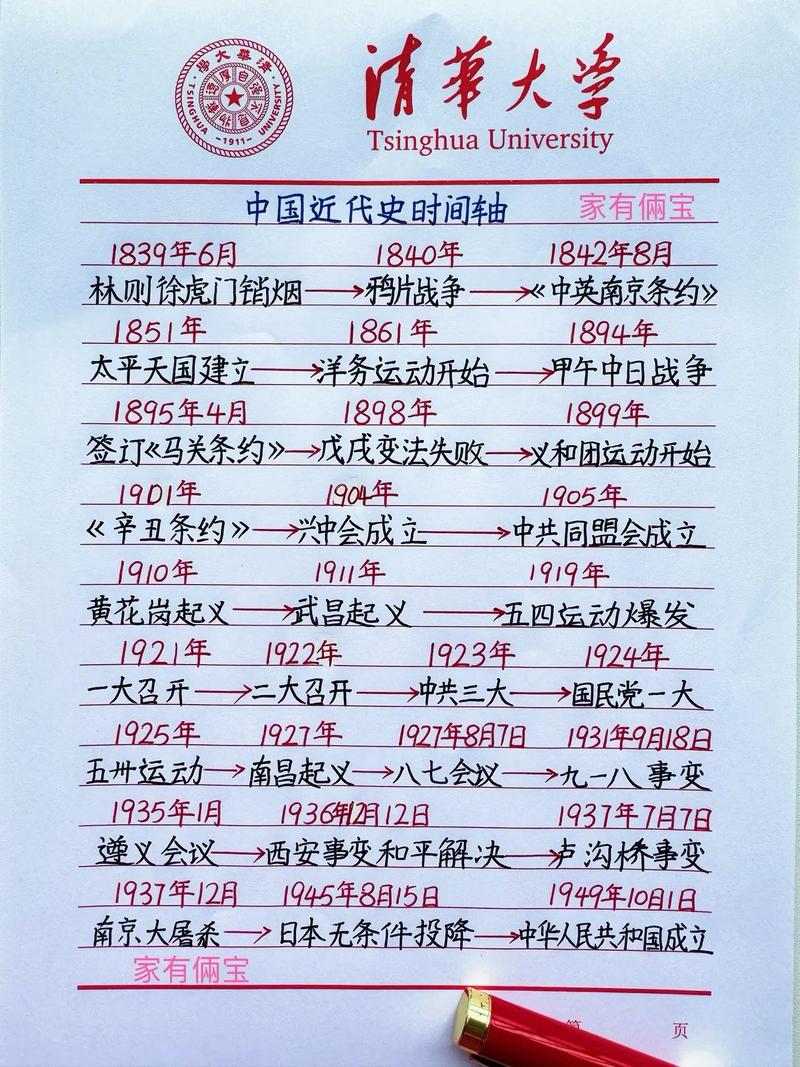 清華大學
TSINGHUA UNIVERSITY
自强不息
厚德載物
-1911-
清华大学
Tsinghua University
中国近代史时间轴
家有俩宝
1839年6月 1840年 1842年8月
林则徐虎门销烟→鸦片战争→《中英南京条约》
1851年 1861年 1894年
太平天国建立→洋务运动开始→甲午中日战争
1895年4月 1898年 1899年
签订《马关条约》→戊戌变法失败→义和团运动开始
1901年 1904年 1905年
《辛丑条约》→兴中会成立→中共同盟会成立
1910年 1911年 1919年
黄花岗起义→武昌起义→五四运动爆发
1921年 1922年 1923年 1924年
一大召开→二大召开→中共三大→国民党一大
1925年 1927年 1927年8月7日 1931年9月18日
五卅运动→南昌起义→八七会议→九一八事变
1935年1月 1936年12月12日 1937年7月7日
遵义会议→西安事变和平解决→卢沟桥事变
1937年12月 1945年8月15日 1949年10月1日
南京大屠杀→日本无条件投降→中华人民共和国成立
家有俩宝
第 页